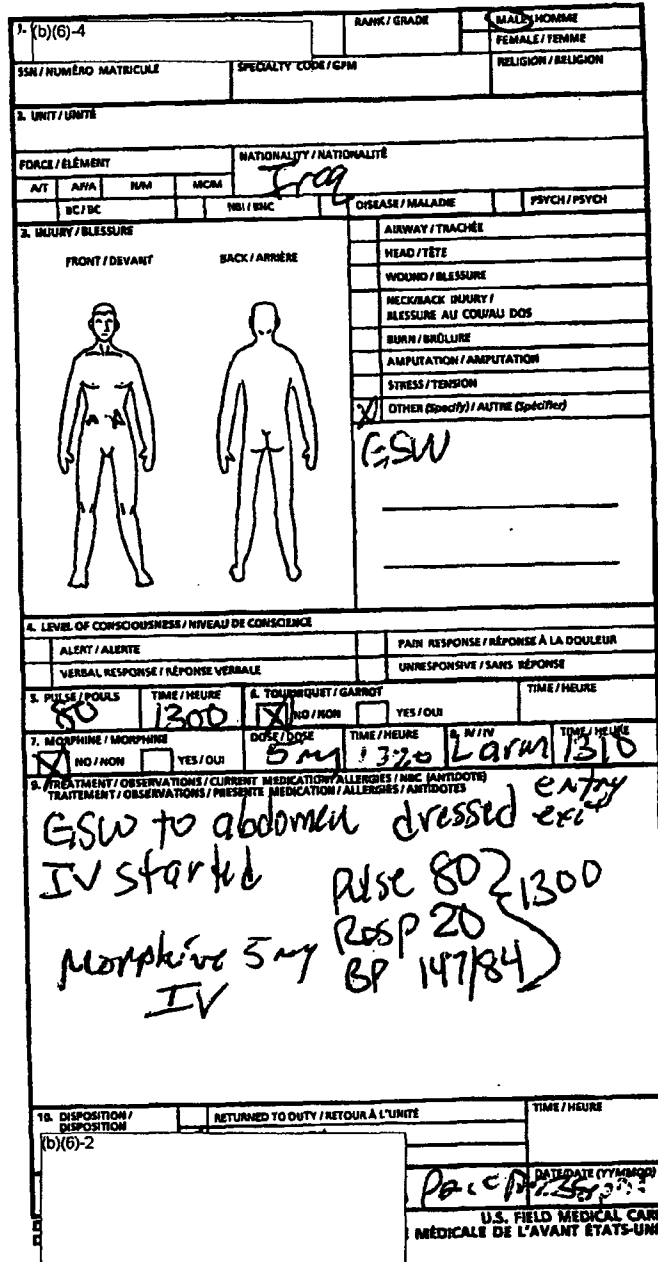 1- (b)(6)-4
RANK / GRADE
MALE / HOMME
FEMALE / FEMME
SSN / NUMÉRO MATRICULE
SPECIALTY CODE / GPM
RELIGION / RELIGION
2. UNIT / UNITÉ
FORCE / ÉLÉMENT
NATIONALITY / NATIONALITÉ
Iraq
A/T AF/A N/M MC/M
BC / BC NBI / BNC DISEASE / MALADIE PSYCH / PSYCH
3. INJURY / BLESSURE
FRONT / DEVANT BACK / ARRIÈRE
AIRWAY / TRACHÉE
HEAD / TÊTE
WOUND / BLESSURE
NECK/BACK INJURY /
BLESSURE AU COU/AU DOS
BURN / BRÛLURE
AMPUTATION / AMPUTATION
STRESS / TENSION
X OTHER (Specify) / AUTRE (Spécifier)
GSW
4. LEVEL OF CONSCIOUSNESS / NIVEAU DE CONSCIENCE
ALERT / ALERTE PAIN RESPONSE / RÉPONSE À LA DOULEUR
VERBAL RESPONSE / RÉPONSE VERBALE UNRESPONSIVE / SANS RÉPONSE
5. PULSE / POULS TIME / HEURE 6. TOURNIQUET / GARROT TIME / HEURE
80 1300 X NO / NON YES / OUI
7. MORPHINE / MORPHINE DOSE / DOSE TIME / HEURE 8. IV / IV TIME / HEURE
X NO / NON YES / OUI 5 mg 1320 L arm 1310
9. TREATMENT / OBSERVATIONS / CURRENT MEDICATION / ALLERGIES / NBC (ANTIDOTE)
TRAITEMENT / OBSERVATIONS / PRESENTE MEDICATION / ALLERGIES / ANTIDOTES
GSW to abdomen dressed entry exit
IV started Pulse 80 1300
Resp 20
Morphine 5 mg BP 147/84
IV
10. DISPOSITION /
DISPOSITION
RETURNED TO DUTY / RETOUR À L'UNITÉ
TIME / HEURE
(b)(6)-2
DATE/DATE (YYMMDD)
U.S. FIELD MEDICAL CARD
MÉDICALE DE L'AVANT ÉTATS-UNIS